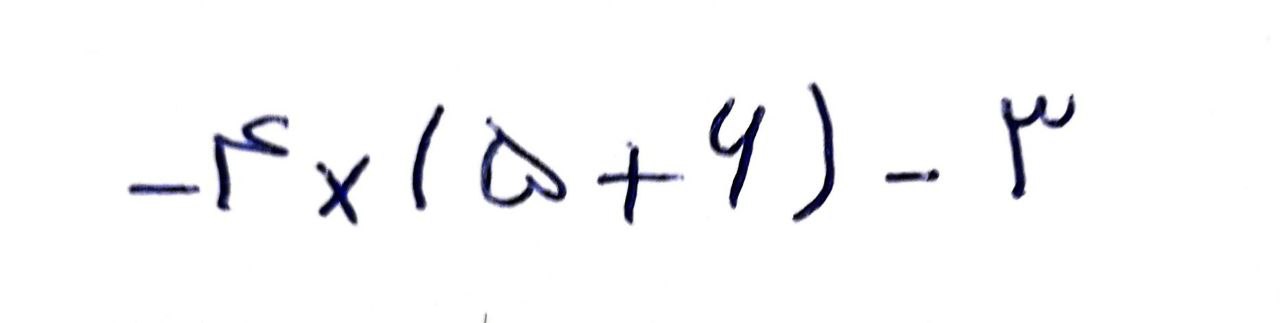 -۴×(۵+۶)-۳